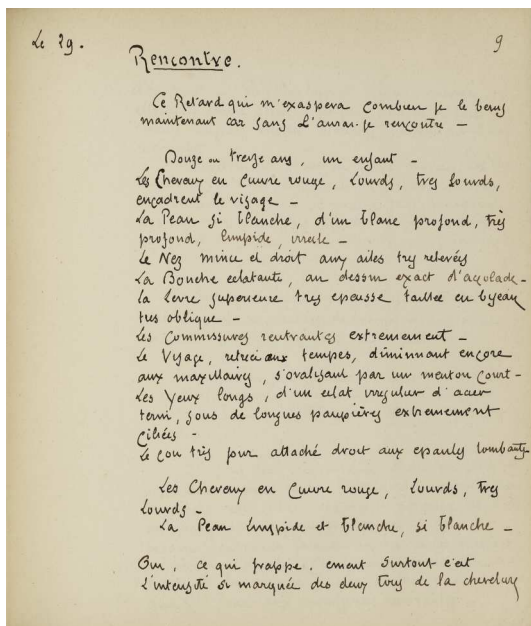 Le 29.
9
Rencontre.
Ce Retard qui m'exaspera combien je le benis
maintenant car sans L'aurai-je rencontré –
Douze ou treize ans, un enfant –
Les Cheveux en Cuivre rouge, Lourds, tres Lourds,
encadrent le visage –
La Peau si blanche, d'un blanc profond, très
profond, limpide, irréelle –
Le Nez mince et droit aux ailes très relevées
La Bouche eclatante, au dessin exact d'accolade –
la levre superieure tres epaisse taillée en byeau
tres oblique –
Les Commissures rentrantes extremement –
Le Visage, retreci aux tempes, diminuant encore
aux maxillaires, s'ovalisant par un menton court –
Les Yeux longs, d'un eclat irregulier d'acier
terni, sous de longues paupières extremement
Ciliées –
Le cou très pur attaché droit aux epaules tombantes
Les Cheveux en Cuivre rouge, Lourds, tres
Lourds –
La Peau limpide et blanche, si blanche –
Oui, ce qui frappe. ement surtout c'est
L'intensité si marquée des deux tons de la chevelure